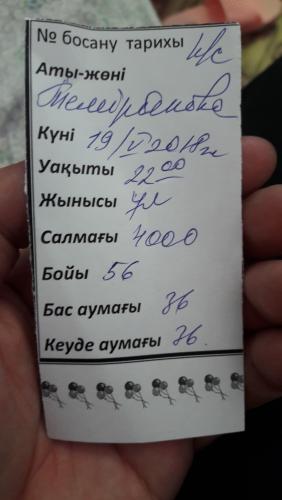 № босану тарихы н/с
Аты-жөні
Күні 19/V 2018ж
Уақыты 22 00
Жынысы ұл
Салмағы 4000
Бойы 56
Бас аумағы 36
Кеуде аумағы 36.